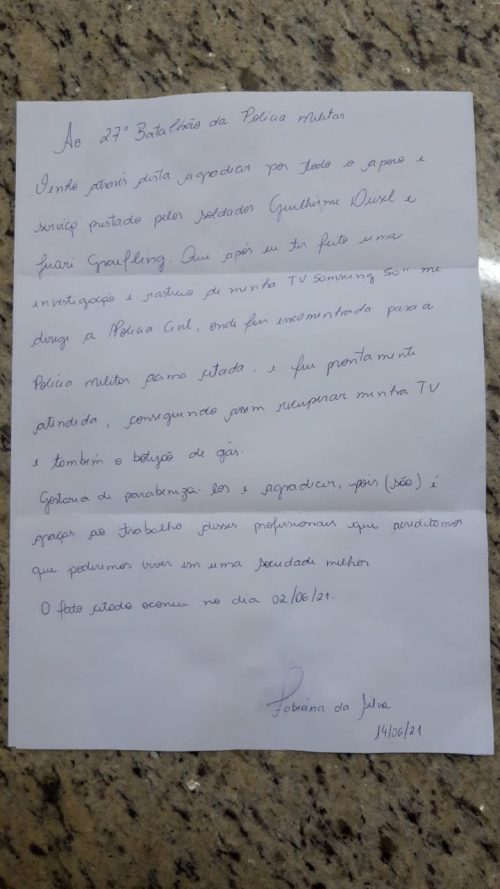 Ao 27º Batalhão da Polícia Militar
Venho através desta agradecer por todo o apoio e
serviço prestado pelos soldados Guilherme e
. Que após eu ter feito uma
investigação e rastreio de minha TV Somsung 50" me
dirigi a Polícia Civil, onde fui encaminhada para a
Polícia Militar acima citada, e fui prontamente
atendida, conseguindo assim recuperar minha TV
e também o botijão de gás.
Gostaria de parabeniza-los e agradecer, pois (são) é
graças ao trabalho desses profissionais que acreditamos
que poderemos viver em uma sociedade melhor.
O fato citado ocorreu no dia 02/06/21.
Fabiana da Silva
14/06/21